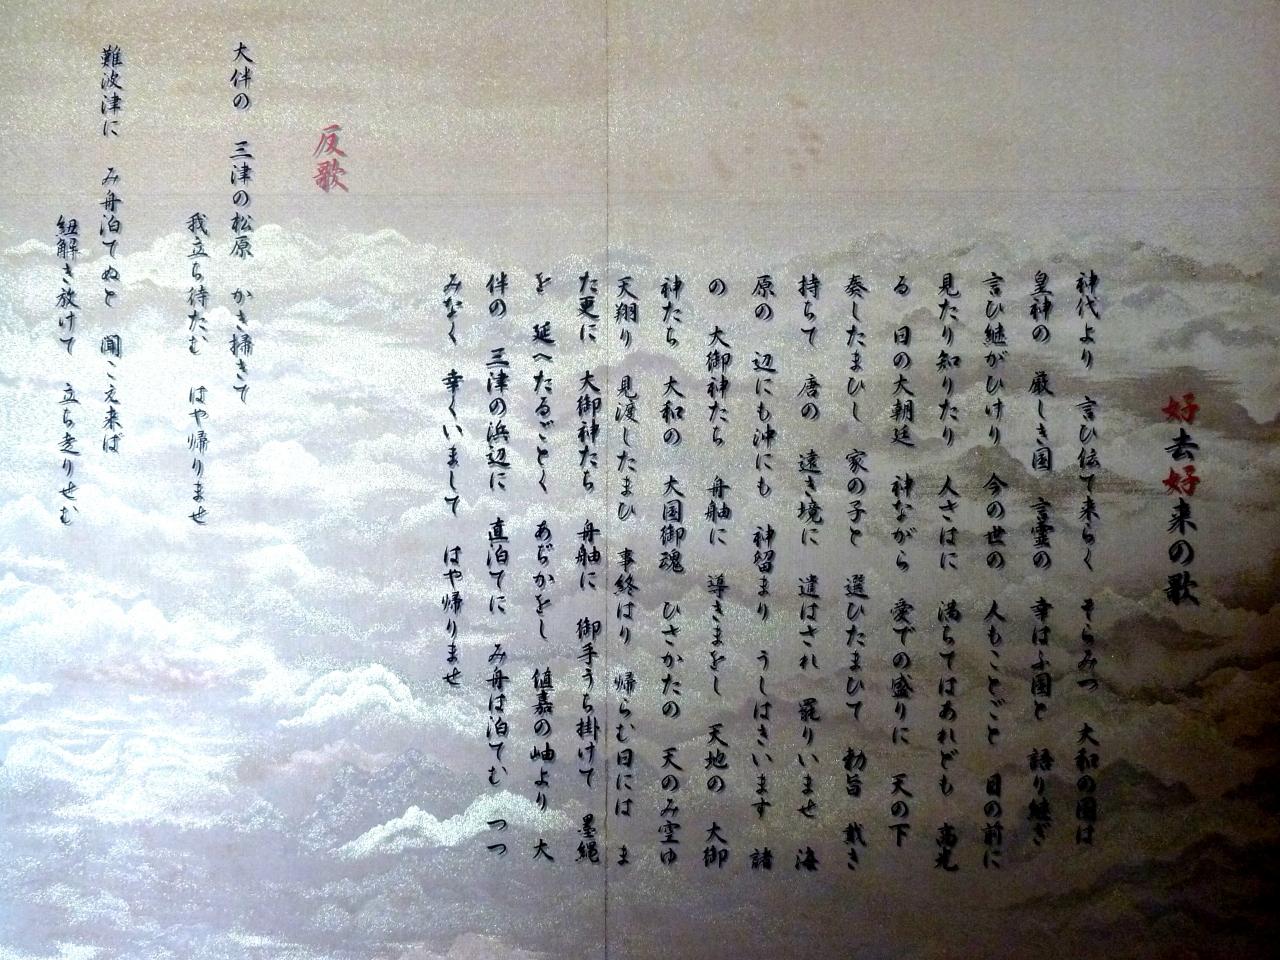 好去好来の歌
神代より 言ひ伝て来らく そらみつ 大和の国は
皇神の 厳しき国 言霊の 幸はふ国と 語り継ぎ
言ひ継がひけり 今の世の 人もことごと 目の前に
見たり知りたり 人さはに 満ちてはあれども 高光
る 日の大朝廷 神ながら 愛での盛りに 天の下
奏したまひし 家の子と 選ひたまひて 勅旨 戴き
持ちて 唐の 遠き境に 遣はされ 罷りいませ 海
原の 辺にも沖にも 神留まり うしはきいます 諸
の 大御神たち 舟舳に 導きまをし 天地の 大御
神たち 大和の 大国御魂 ひさかたの 天のみ空ゆ
天翔り 見渡したまひ 事終はり 帰らむ日には ま
た更に 大御神たち 舟舳に 御手うち掛けて 墨縄
を 延へたるごとく あぢかをし 値嘉の岫より 大
伴の 三津の浜辺に 直泊てに み舟は泊てむ つつ
みなく 幸くいまして はや帰りませ
反歌
大伴の 三津の松原 かき掃きて
我立ち待たむ はや帰りませ
難波津に み舟泊てぬと 聞こえ来ば
紐解き放けて 立ち走りせむ